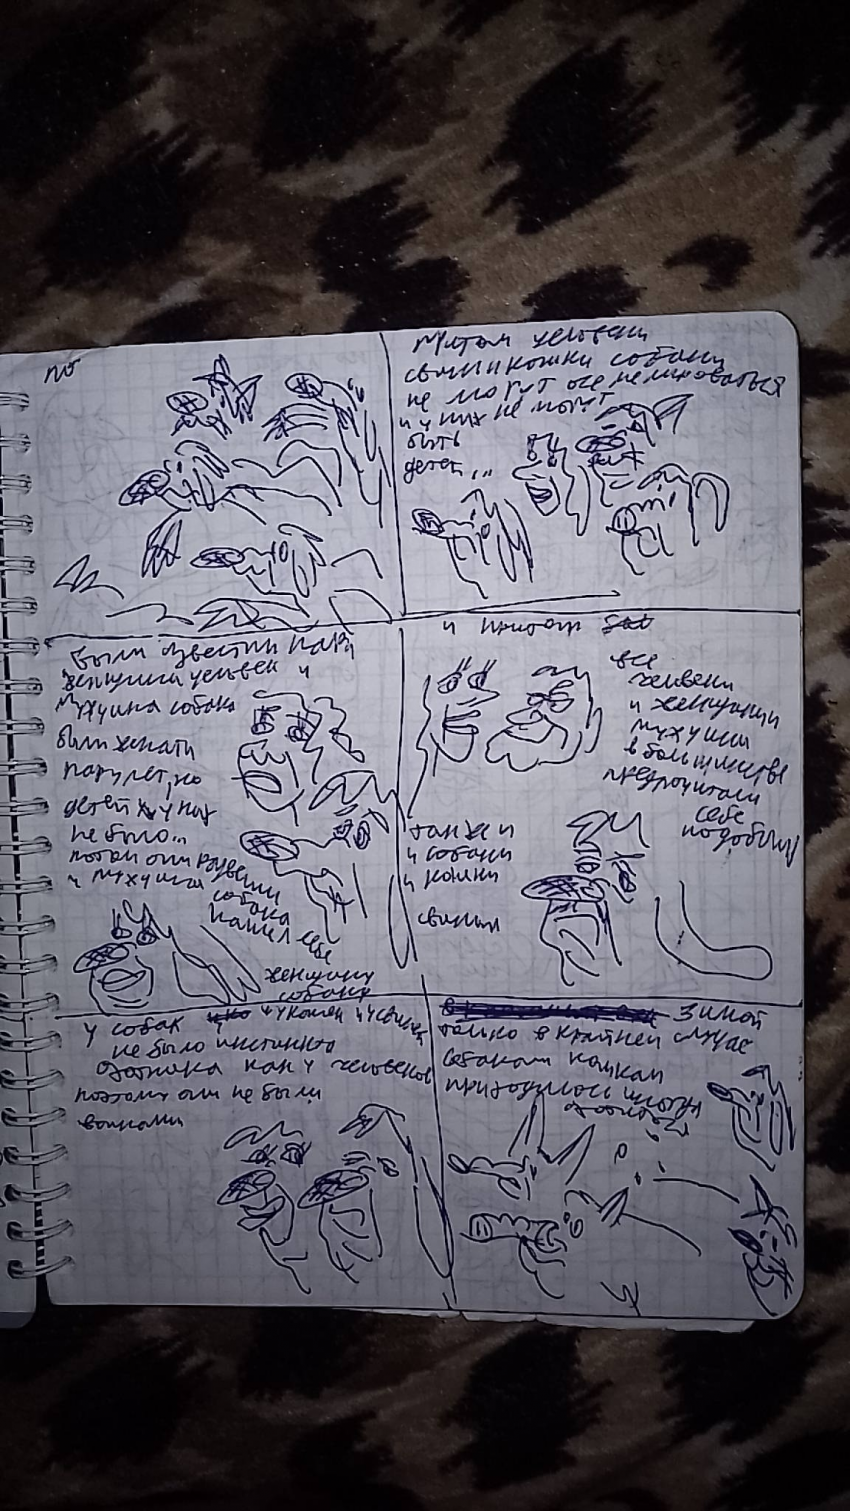 но
Притом человеки
свиньи кошки собаки
не могут
и у них не могут
быть
детей...
Были известны пара
женщина человек и
мужчина собака
были женаты
пару лет, но
детей у них
не было...
потом они развелись
и мужчина
собака
нашел себе
женщину
собаку
и притом
все
человеки
и женщины
мужчины
в большинстве
предпочитали
себе
подобных
также и
и собаки
и кошки
свиньи
у собак и у кошек и у свиней
не было инстинкта
охотника как у человеков
поэтому они не были
воинами
Зимой
только в крайнем случае
собакам кошкам
приходилось